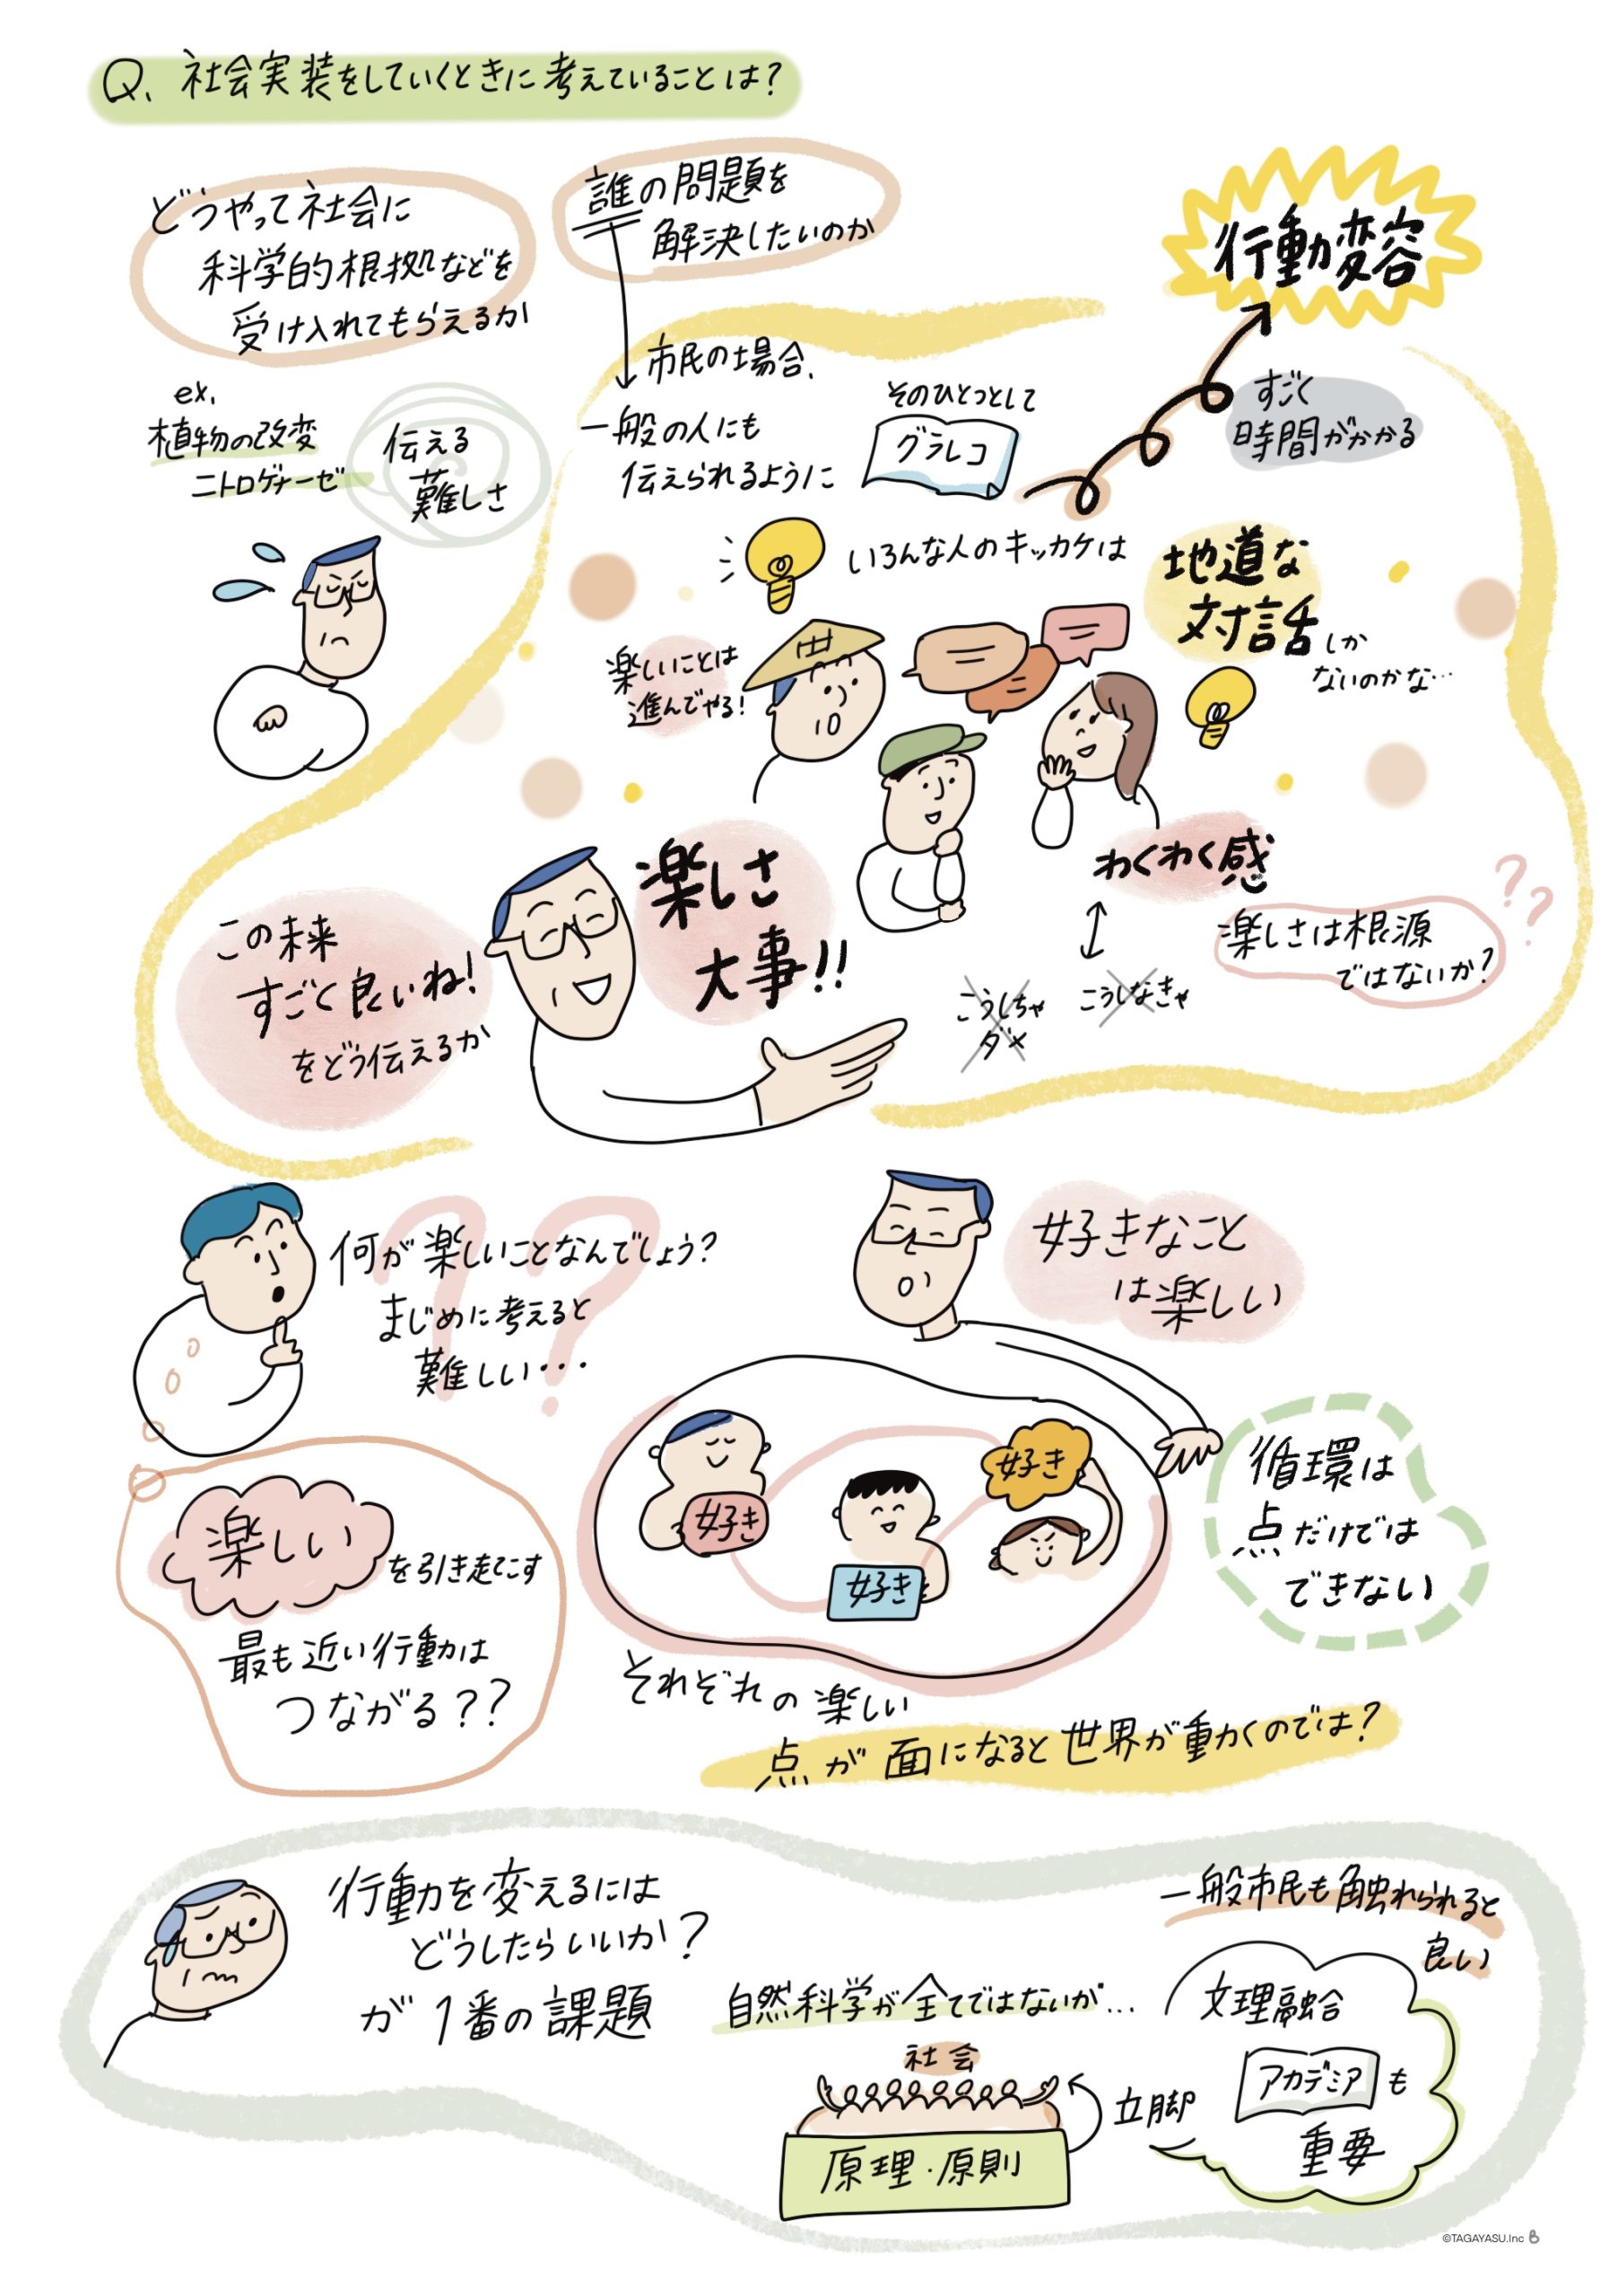 Q、社会実装をしていくときに考えていることは？
どうやって社会に
科学的根拠などを
受け入れてもらえるか
ex.
植物の改変
ニトロゲナーゼ
伝える
難しさ
誰の問題を
解決したいのか
市民の場合、
一般の人にも
伝えられるように
そのひとつとして
グラレコ
行動変容
すごく
時間がかかる
いろんな人のキッカケは
地道な
対話しか
ないのかな…
楽しいことは
進んでやる！
田
楽しさ
大事!!
この未来
すごく良いね！
をどう伝えるか
わくわく感
こうしちゃ
ダメ
こうしなきゃ
楽しさは根源
ではないか？
??
何が楽しいことなんでしょう？
まじめに考えると
難しい・・・
??
好きなこと
は楽しい
楽しい
を引き起こす
最も近い行動は
つながる？？
好き
好き
好き
循環は
点だけでは
できない
それぞれの楽しい
点が面になると世界が動くのでは？
行動を変えるには
どうしたらいいか？
が1番の課題
自然科学が全てではないが…
社会
原理・原則
立脚
一般市民も触れられると
良い
文理融合
アカデミアも
重要
©TAGAYASU.Inc